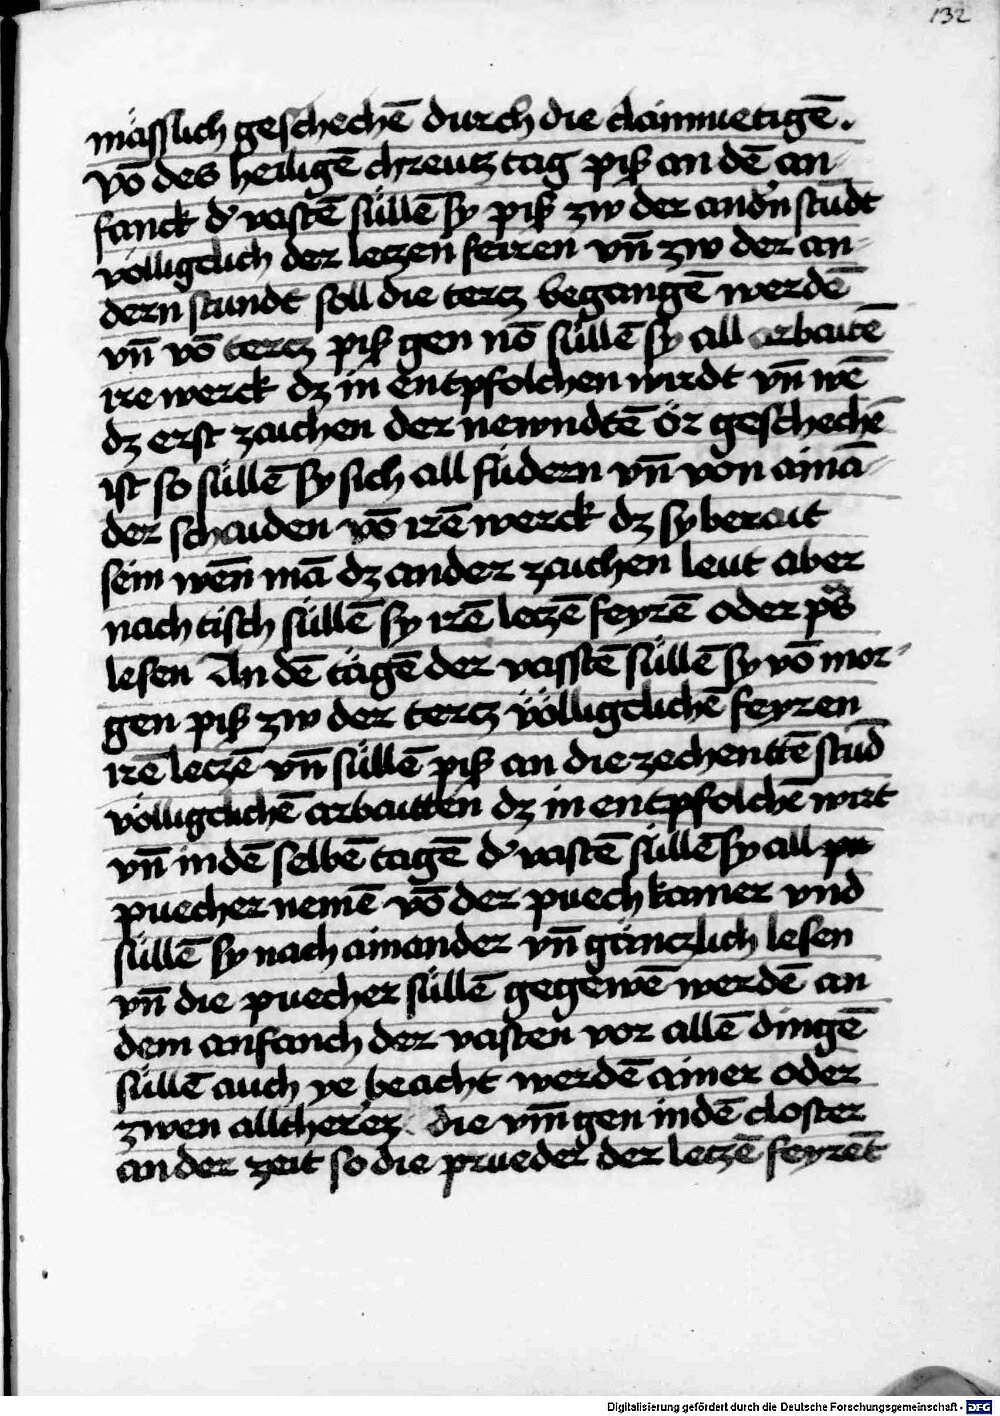 132
mässlich geschechē durch die clainmuetigē.
Vō des heiligē chreutz tag piß an dē an-
fanck d' vastē süllē sy piß zw der andn̄ stūdt
völligclich der leczen feiren vn̄ zw der an-
dern stundt soll die tercz begangē werdē
vn̄ vō tercz piß gen nō süllē sy all arbaitē
ire werck dz in entpfolchen wirdt vn̄ wē
dz erst zaichen der newndtē ör geschechē
ist so süllē sy sich all füdern vn̄ von ainā-
der schaiden vō irē werck dz sy berait
sein wen̄ mā dz ander zaichen leut aber
nach tisch süllē sy irē leczē feyrē oder ps
lesen An dē tägē der vasstē süllē sy vō mor-
gen piß zw der tercz völligclichē feyren
irē leczē vn̄ süllē piß an die zechenttē stūd
völligclichē arbaitten dz in entpfolchē wirt
vn̄ in dē selbē tagē d' vastē süllē sy all
puecher nemē vō der puech kamer vnd
süllē sy nach ainander vn̄ gänczlich lesen
vn̄ die puecher süllē gegewē werdē an
dem anfanch der vasten vor allē dingē
süllē auch ye beacht werdē ainer oder
zwen alltherez die vm̄ gen in dē closter
an der zeit so die prueder der leczē feyrēt
Digitalisierung gefördert durch die Deutsche Forschungsgemeinschaft - DFG